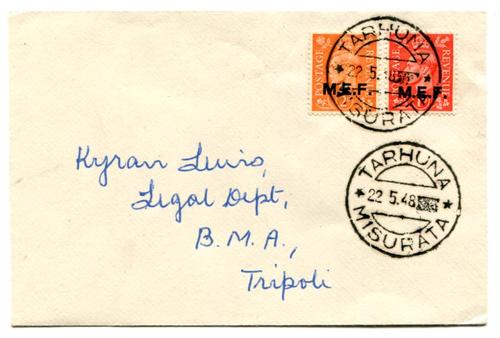 TARHUNA
22.5.48
MISURATA
POSTAGE
REVENUE
M.E.F. M.E.F.
TARHUNA
22 5.48
MISURATA
Kyran
Legal Dept,
B.M.A.,
Tripoli